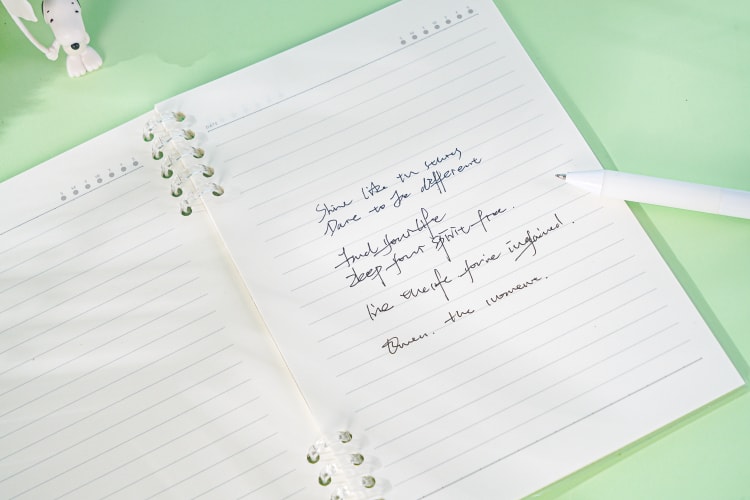 DATE
S M T W T F S
Shine like the
Dare to be different
find your life
keep your spirit free.
live the life you've imagined.
the moment.